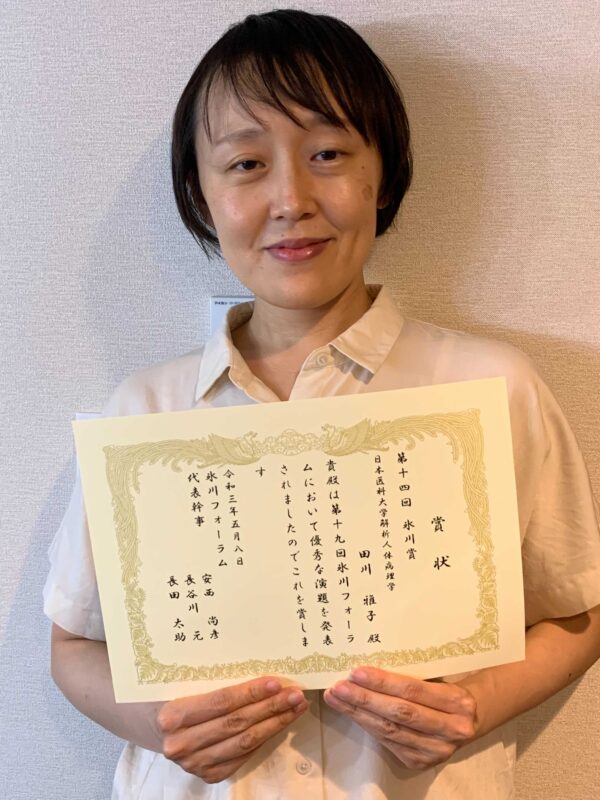 賞状
第十四回 氷川賞
日本医科大学解析人体病理学
田川 雅子 殿
貴殿は第十九回氷川フォーラ
ムにおいて優秀な演題を発表
されましたのでこれを賞しま
す
令和三年五月八日
氷川フォーラム
代表幹事
安西 尚彦
長谷川 元
長田 太助